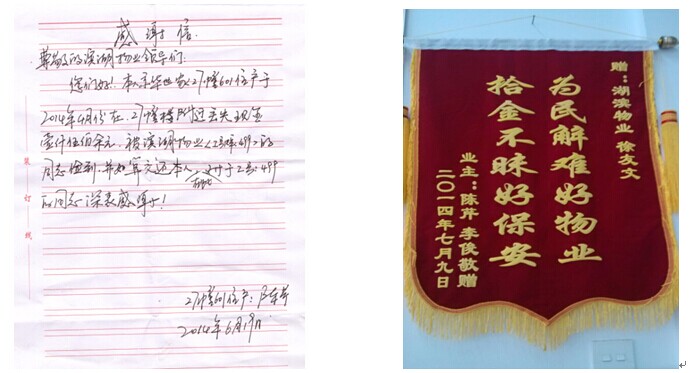 感谢信
尊敬的滨湖物业领导们:
您们好!本人
2014年4月份在27幢楼附近丢失现金
壹仟伍佰余元,被滨湖物业
同志捡到,并如数归还本人,
的同志深表感谢!
27幢601住户:
2014年6月19日
装
订
线
赠:湖滨物业 徐友文
为民解难好物业
拾金不昧好保安
业主:陈芹 李俊敬赠
二〇一四年七月九日